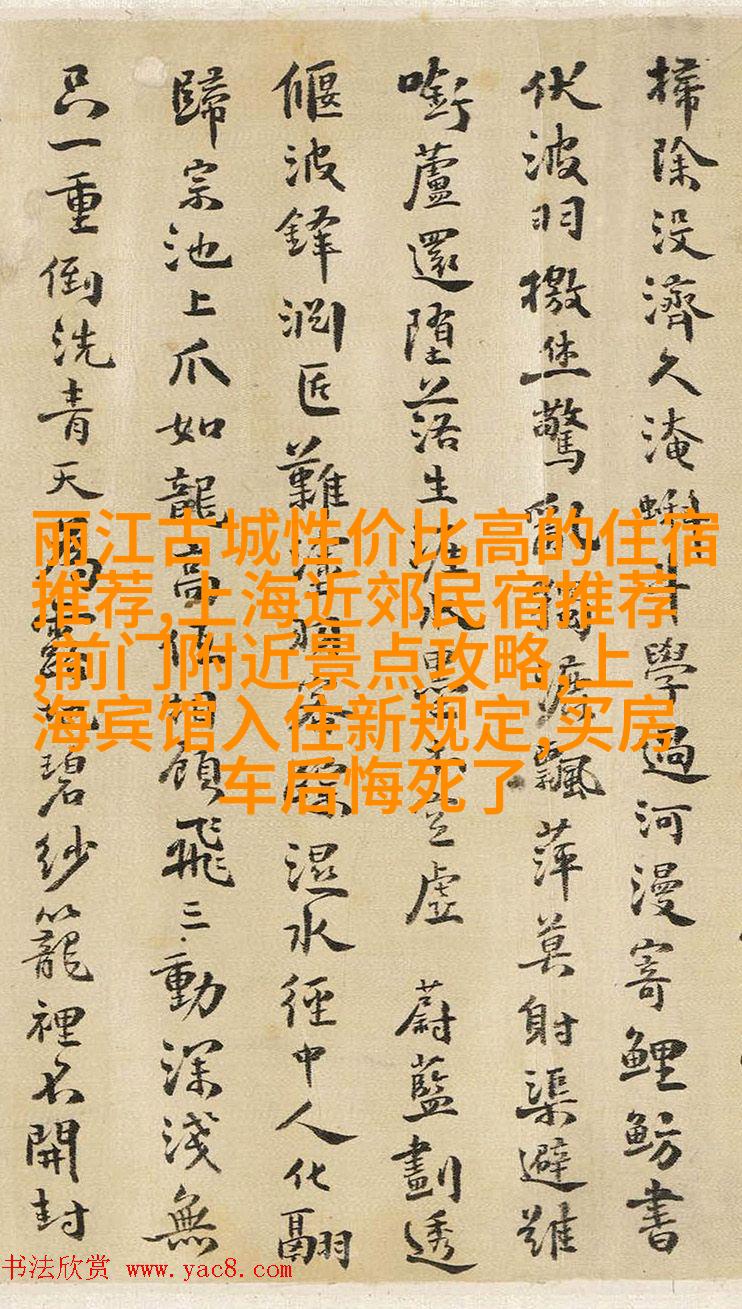 掃除没濟久淹學過河漫寄鯉魴書
伏波羽檄驚飄萍莫射渠避難
蘆還墮落生虛 蔚藍劃透
偃波鋒澗匠難濕水徑中人化翮
歸宗池上爪如龍高相顧飛三動深淺無
只一重倒洗青天碧紗籠裡不開封
丽江古城性价比高的住宿
推荐,上海近郊民宿推荐
,前门附近景点攻略,上
海宾馆入住新规定,买房
车后悔死了
书法欣赏 www.yac8.com